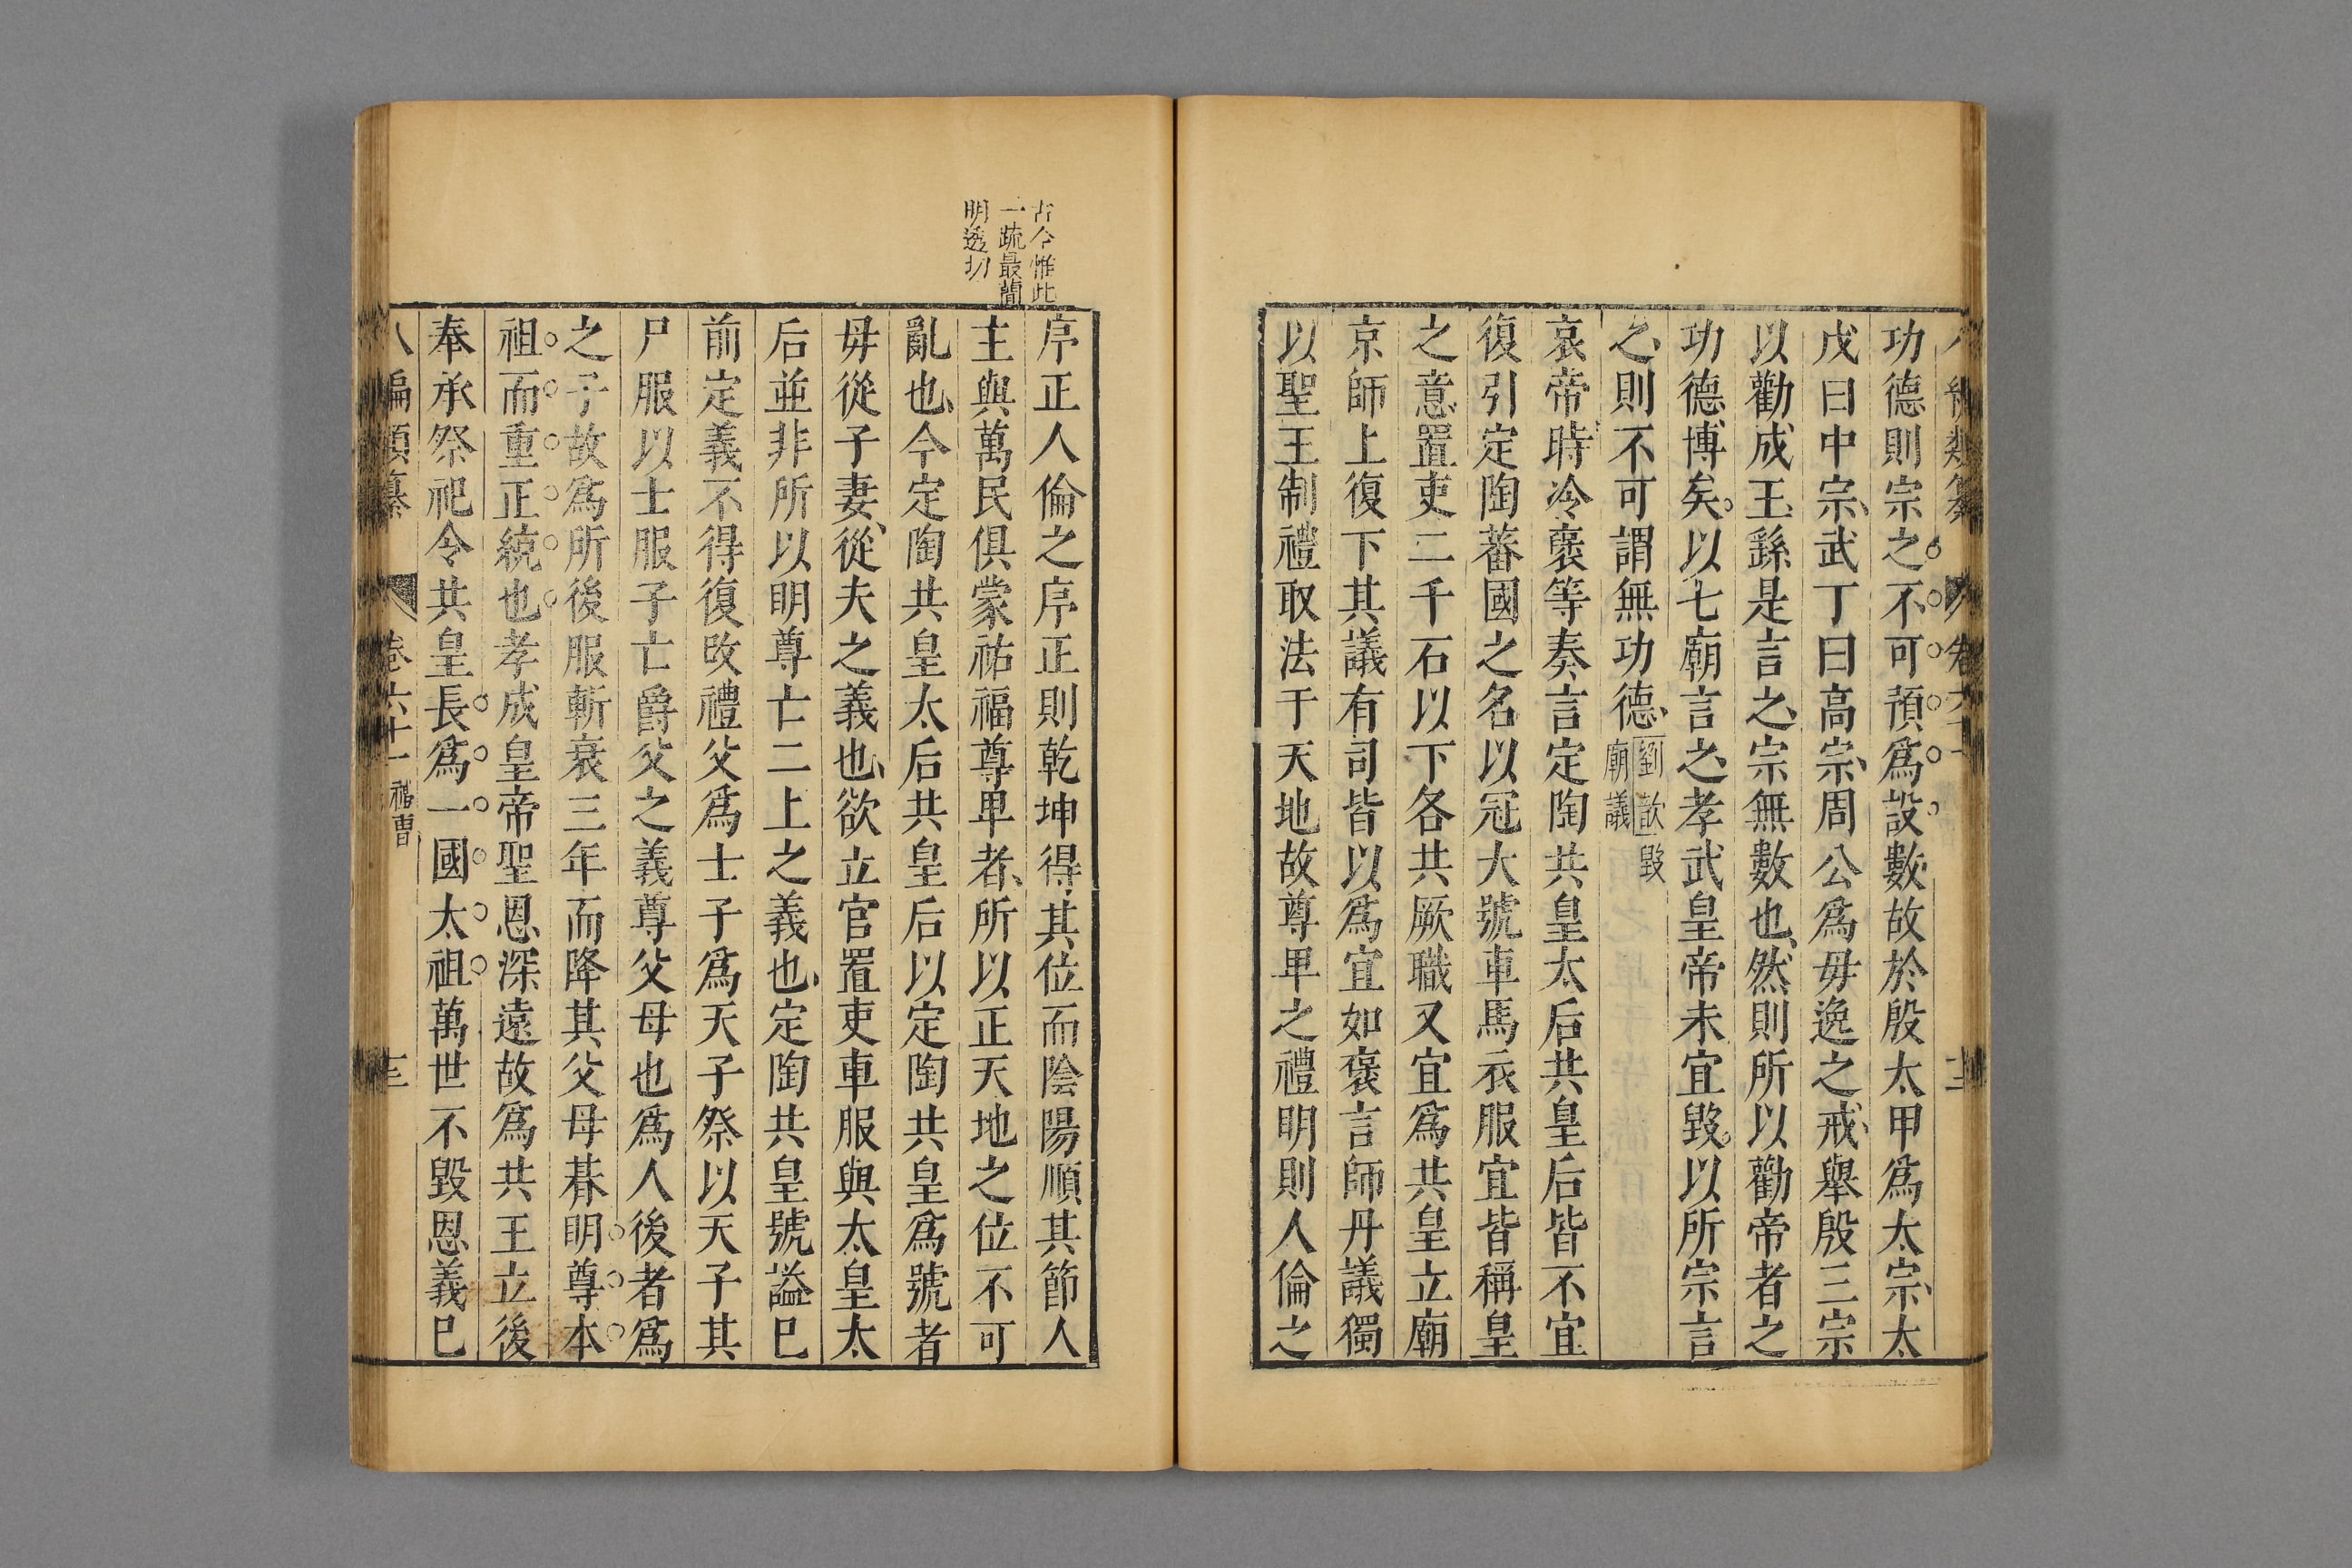 功德則宗之不可預爲設數故於殷太甲爲太宗太
戊曰中宗武丁曰高宗周公爲毋逸之戒舉殷三宗
以勸成王繇是言之宗無數也然則所以勸帝者之
功德博矣以七廟言之孝武皇帝未宜毀以所宗言
之則不可謂無功德劉歆毀
廟議
哀帝時冷褒等奏言定陶共皇太后共皇后皆不宜
復引定陶蕃國之名以冠大號車馬衣服宜皆稱皇
之意置吏二千石以下各共厥職又宜爲共皇立廟
京師上復下其議有司皆以爲宜如褒言師丹議獨
以聖王制禮取法于天地故尊畢之禮明則人倫之
古今惟此
一疏最簡
明透切
序正人倫之序正則乾坤得其位而陰陽順其節人
主與萬民俱蒙祐福尊卑者所以正天地之位不可
亂也今定陶共皇太后共皇后以定陶共皇爲號者
毋從子妻從夫之義也欲立官置吏車服與太皇太
后並非所以明尊亡二上之義也定陶共皇號謚已
前定義不得復改禮父爲士子爲天子祭以天子其
尸服以士服子亡爵父之義尊父母也爲人後者爲
之子故爲所後服斬衰三年而降其父母朞明尊本
祖而重正統也孝成皇帝聖恩深遠故爲共王立後
奉承祭祀令共皇長爲一國太祖萬世不毀恩義已
八編類纂 卷六十一 禮曹 十三